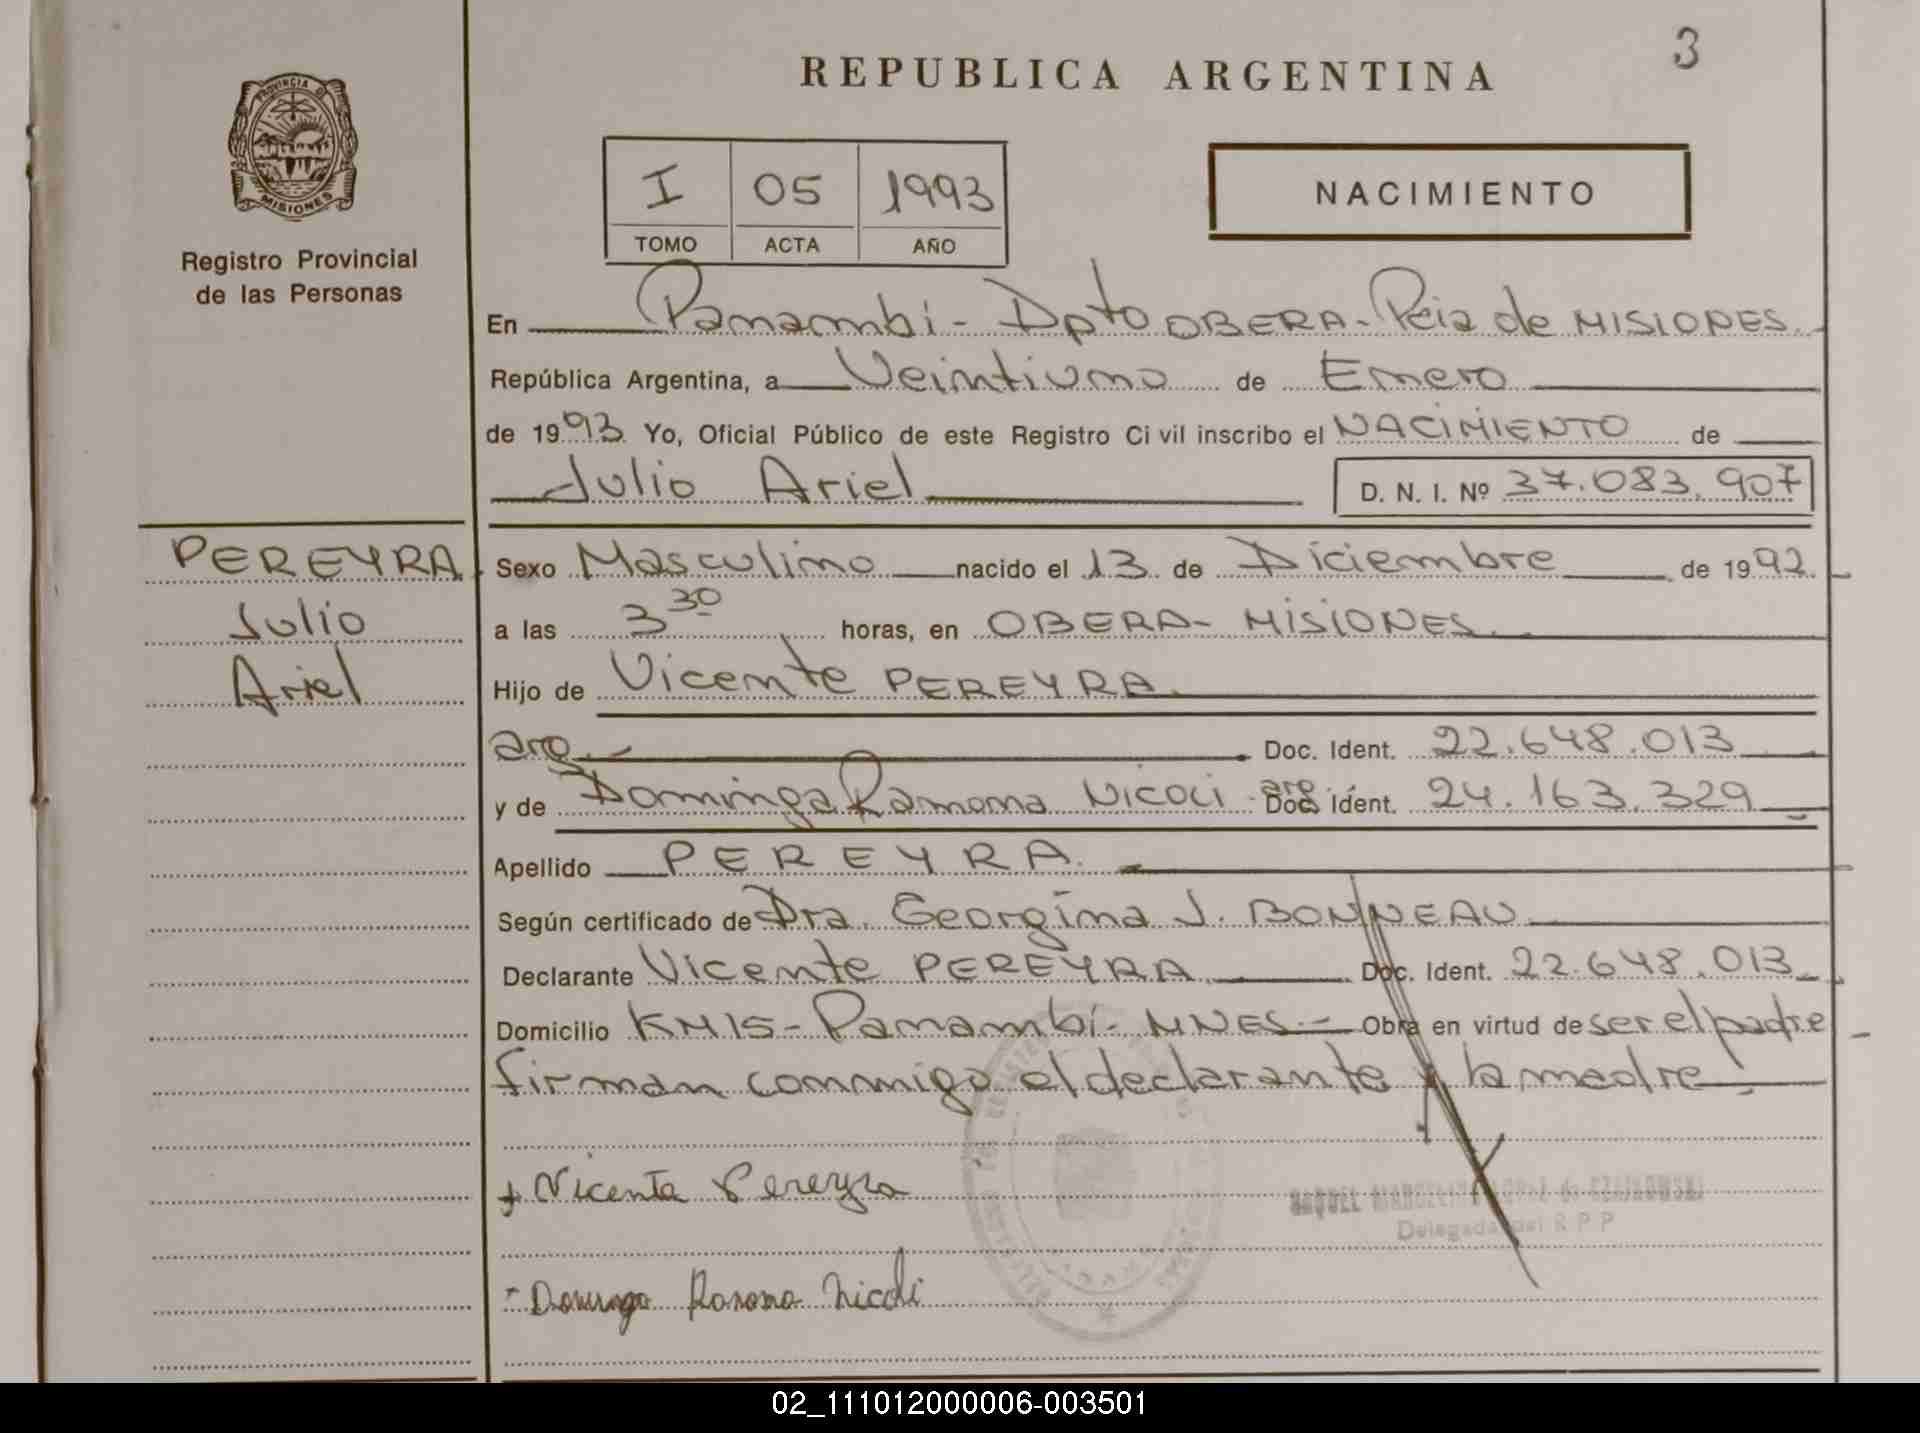 3
REPUBLICA ARGENTINA
PROVINCIA DE
MISIONES
Registro Provincial
de las Personas
I 05 1993
TOMO ACTA AÑO
NACIMIENTO
En Panambí - Dpto OBERA - Pcia de MISIONES.
República Argentina, a Veintiuno de Enero
de 1993 Yo, Oficial Público de este Registro Ci vil inscribo el NACIMIENTO de
Julio Ariel D. N. I. Nº 37.083.907
PEREYRA
Julio
Ariel
Sexo Masculino nacido el 13 de Diciembre de 1992
a las 3 30 horas, en OBERA - MISIONES
Hijo de Vicente PEREYRA
arg. Doc. Ident. 22.648.013
y de Dominga Ramona NICOLI - arg Doc. Ident. 24.163.329
Apellido PEREYRA.
Según certificado de Dra. Georgina J. BONNEAU
Declarante Vicente PEREYRA Doc. Ident. 22.648.013
Domicilio KM 15 - Panambí - MNES. - Obra en virtud de ser el padre
firman conmigo el declarante y la madre
Vicente Pereyra
Delegada del R P P
Dominga Ramona Nicoli
02_111012000006-003501